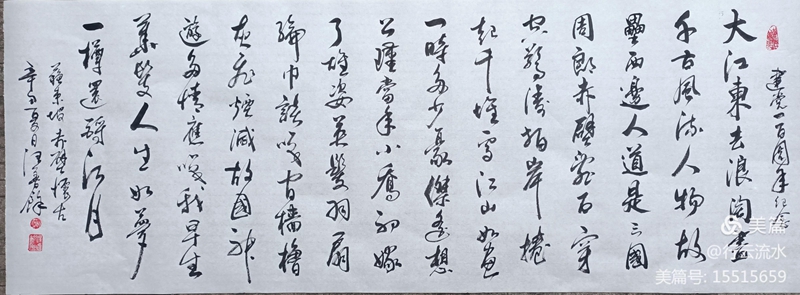 建党一百周年纪念
大江東去浪淘盡
千古風流人物故
壘西邊人道是三國
周郎赤壁亂石穿
空驚濤拍岸捲
起千堆雪江山如畫
一時多少豪傑遙想
公瑾當年小喬初嫁
了雄姿英髮羽扇
綸巾談笑間檣櫓
灰飛煙滅故國神
遊多情應笑我早生
華髮人生如夢
一樽還酹江月
蘇東坡赤壁懷古
辛丑夏日汪
美篇
@行云流水
美篇号: 15515659